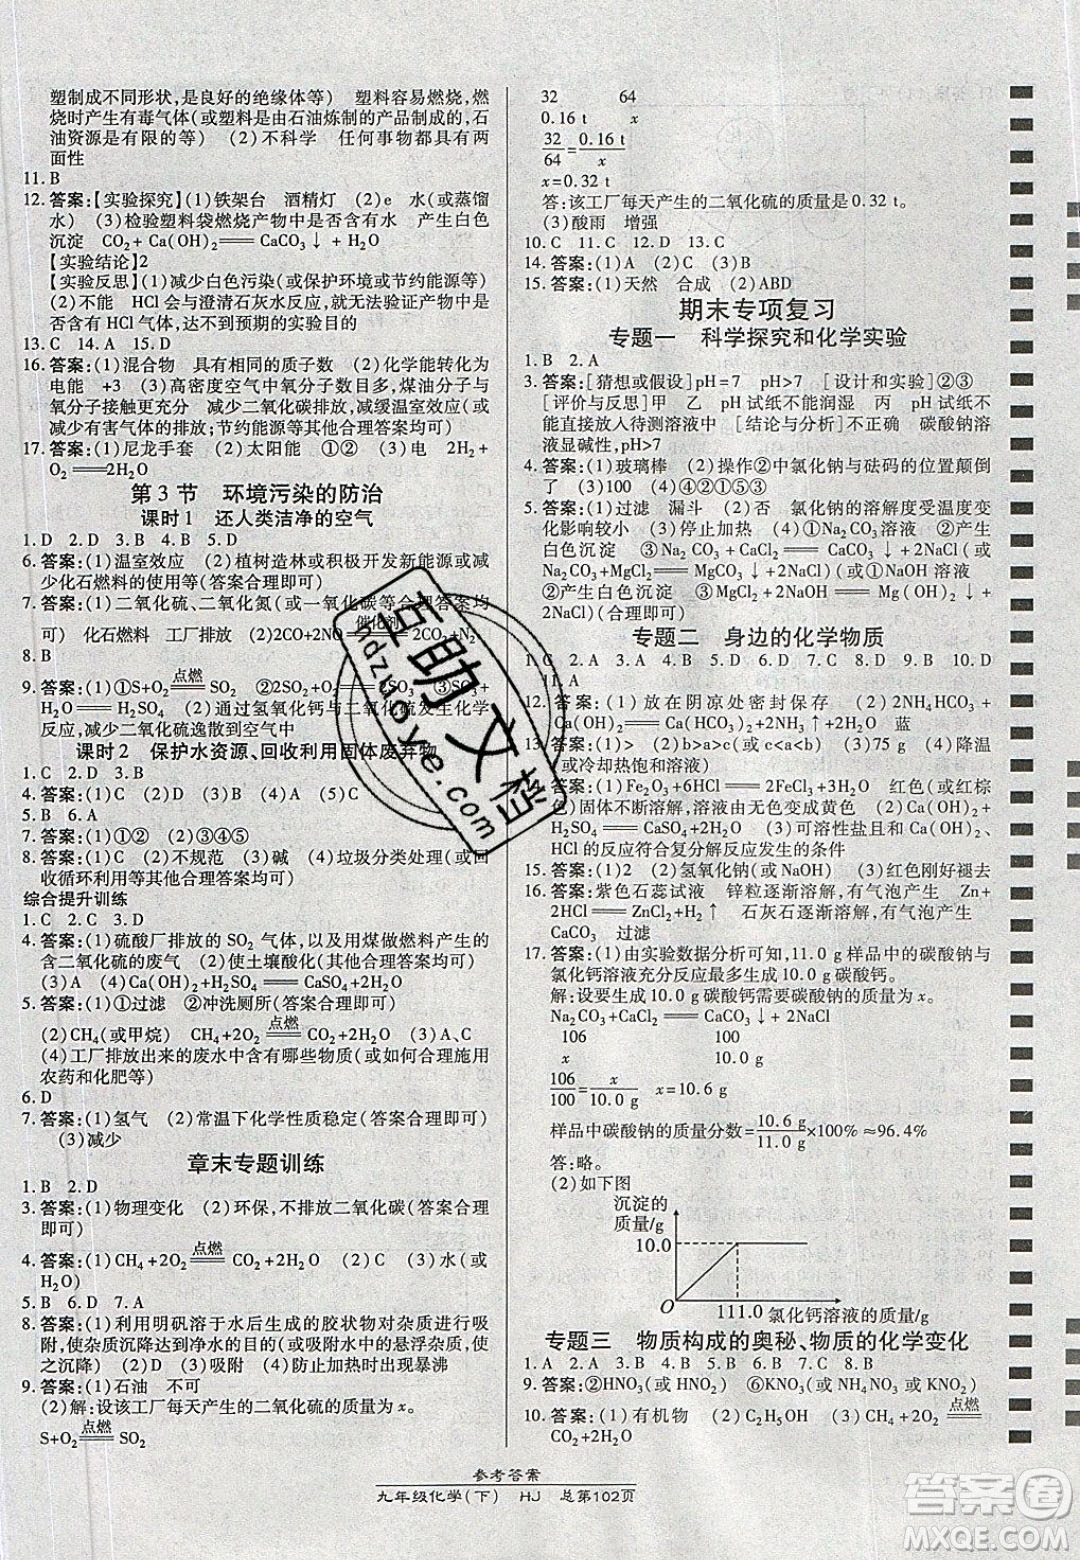 塑制成不同形状,是良好的绝缘体等) 塑料容易燃烧,燃
烧时产生有毒气体(或塑料是由石油炼制的产品制成的,石
油资源是有限的等) (2)不科学 任何事物都具有两
面性
11. B
12. 答案:【实验探究】(1)铁架台 酒精灯 (2)e 水(或蒸馏
水) (3)检验塑料袋燃烧产物中是否含有水 产生白色
沉淀 CO₂+Ca(OH)₂══CaCO₃↓+H₂O
【实验结论】2
【实验反思】(1)减少白色污染(或保护环境或节约能源等)
(2)不能 HCl会与澄清石灰水反应,故无法验证产物中是
否含有HCl气体,达不到预期的实验目的
13. C 14. A 15. D
16. 答案:(1)混合物 具有相同的质子数 (2)化学能转化为
电能 +3 (3)高密度空气中氧分子数目多,煤油分子与
氧分子接触更充分 减少二氧化碳排放,减缓温室效应(或
减少有害气体的排放;节约能源等其他合理答案均可)
17. 答案:(1)尼龙手套 (2)太阳能 ①② (3)电 2H₂+
O₂══2H₂O
第3节 环境污染的防治
课时1 还人类洁净的空气
1. D 2. D 3. B 4. B 5. D
6. 答案:(1)温室效应 (2)植树造林或积极开发新能源(或减
少化石燃料的使用等)(答案合理即可)
7. 答案:(1)二氧化硫、二氧化氮(或一氧化碳等合理答案均
可) 化石燃料 工厂排放 (2)2CO+2NO 催化剂 +N₂
8. B
9. 答案:(1)①S+O₂ 点燃══ SO₂ ②SO₂ ③SO₂+
H₂O══H₂SO₃ (2)通过氢氧化钙与二氧化硫发生化学
反应,减少二氧化硫逸散到空气中
课时2 保护水资源、回收利用固体废弃物
1. C 2. D 3. B
4. 答案:(1)C (2)D (3)B (4)A (5)C
5. B 6. A
7. 答案:(1)①② (2)③④⑤
8. 答案:(1)C (2)不规范 (3)碱 (4)垃圾分类处理(或回
收循环利用等其他合理答案均可)
综合提升训练
1. C 2. D 3. C
4. 答案:(1)硫酸厂排放的SO₂气体,以及用煤做燃料产生的
含二氧化硫的废气 (2)使土壤酸化(其他合理答案均可)
(3)A (4)CaO+H₂SO₄══CaSO₄+H₂O
5. 答案:(1)①过滤 ②冲洗厕所(答案合理即可)
(2)CH₄(或甲烷) CH₄+2O₂ 点燃══ CO₂+2H₂O (3)A、C
(4)工厂排放出来的废水中含有哪些物质(或如何合理施用
农药和化肥等)
6. D
7. 答案:(1)氢气 (2)常温下化学性质稳定(答案合理即可)
(3)减少
章末专题训练
1. B 2. D
3. 答案:(1)物理变化 (2)环保,不排放二氧化碳(答案合理
即可)
4. 答案:(1)CH₄+2O₂ 点燃══ CO₂+2H₂O (2)D (3)水(或
H₂O)
5. B 6. D 7. A
8. 答案:(1)利用明矾溶于水后生成的胶状物对杂质进行吸
附,使杂质沉降达到净水目的(或吸附悬浮杂质,并使
之沉降) (3)吸附 (4)防止加热时出现暴沸
9. 答案:(1)石油 不可
(2)解:设该工厂每天产生的二氧化硫的质量为x。
S+O₂ 点燃══ SO₂
32 64
0.16 t x
32/64=0.16 t/x
x=0.32 t
答:该工厂每天产生的二氧化硫的质量是0.32 t。
(3)酸雨 增强
10. C 11. C 12. D 13. C
14. 答案:(1)A (2)C (3)B
15. 答案:(1)天然 合成 (2)ABD
期末专项复习
专题一 科学探究和化学实验
1. B 2. A
3. 答案:[猜想或假设]pH=7 [设计和实验]②③
[评价与反思]甲 乙 pH试纸不能润湿 丙 pH试纸不
能直接放入待测溶液中 [结论与分析]不正确 碳酸钠溶
液显碱性,pH>7
4. 答案:(1)玻璃棒 (2)操作②中氯化钠与砝码的位置颠倒
了 (3)4 (4)100
5. 答案:(1)过滤 漏斗 (2)否 氯化钠的溶解度受温度变
化影响较小 (3)停止加热 (4)①Na₂CO₃溶液 ②产生
白色沉淀 ③Na₂CO₃+CaCl₂══CaCO₃↓+2NaCl(或
Na₂CO₃+MgCl₂══MgCO₃↓+2NaCl) ①NaOH溶液
②产生白色沉淀 ③2NaOH+MgCl₂══Mg(OH)₂↓+
2NaCl (5)(合理即可)
专题二 身边的化学物质
1. C 2. A 3. A 4. A 5. D 6. D 7. D 8. B 9. B 10. D
11. A
12. 答案:(1)放在阴凉处密封保存 (2)NH₄NO₃+
NaOH══NaNO₃+NH₃↑+H₂O 蓝
13. 答案:(1)> (2)b>a>c(或b>c=a) (3)75 g (4)降温
(或冷却热饱和溶液)
14. 答案:(1)Fe₂O₃+6HCl══2FeCl₃+3H₂O 红色(或红棕
色)固体不断溶解,溶液由无色变成黄色 (2)Ca(OH)₂+
H₂SO₄══CaSO₄+2H₂O (3)可溶性盐且和CaCO₃、
HCl的反应符合复分解反应发生的条件
15. 答案:(1)2 (2)氢氧化钠(或NaOH) (3)红色刚好褪去
16. 答案:紫色石蕊试液 锌粒逐渐溶解,有气泡产生 Zn+
2HCl══ZnCl₂+H₂↑ 石灰石逐渐溶解,有气泡产生
CaCO₃ 过滤
17. 答案:(1)由实验数据分析可知,11.0 g样品中的碳酸钠与
氯化钙溶液充分反应后最多生成10.0 g碳酸钙。
解:设要生成10.0 g碳酸钙需要碳酸钠的质量为x。
Na₂CO₃+CaCl₂══CaCO₃↓+2NaCl
106 100
x 10.0 g
106/100=x/10.0 g x=10.6 g
样品中碳酸钠的质量分数=10.6 g/11.0 g×100%≈96.4%
答:略。
(2)如下图
沉淀的
质量/g
10.0
O 111.0 氯化钙溶液的质量/g
专题三 物质构成的奥秘、物质的化学变化
1. A 2. A 3. D 4. B 5. B 6. D 7. C 8. B
9. 答案:②HNO₃(或HNO₂) ⑥KNO₃(或NaNO₃或KNO₂)
10. 答案:(1)有机物 (2)C₂H₅OH (3)CH₄+2O₂ 点燃══
CO₂+2H₂O
参考答案
九年级化学(下) HJ 总第102页
互助文档
hdzuoye.com
答案圈
MXQE.COM